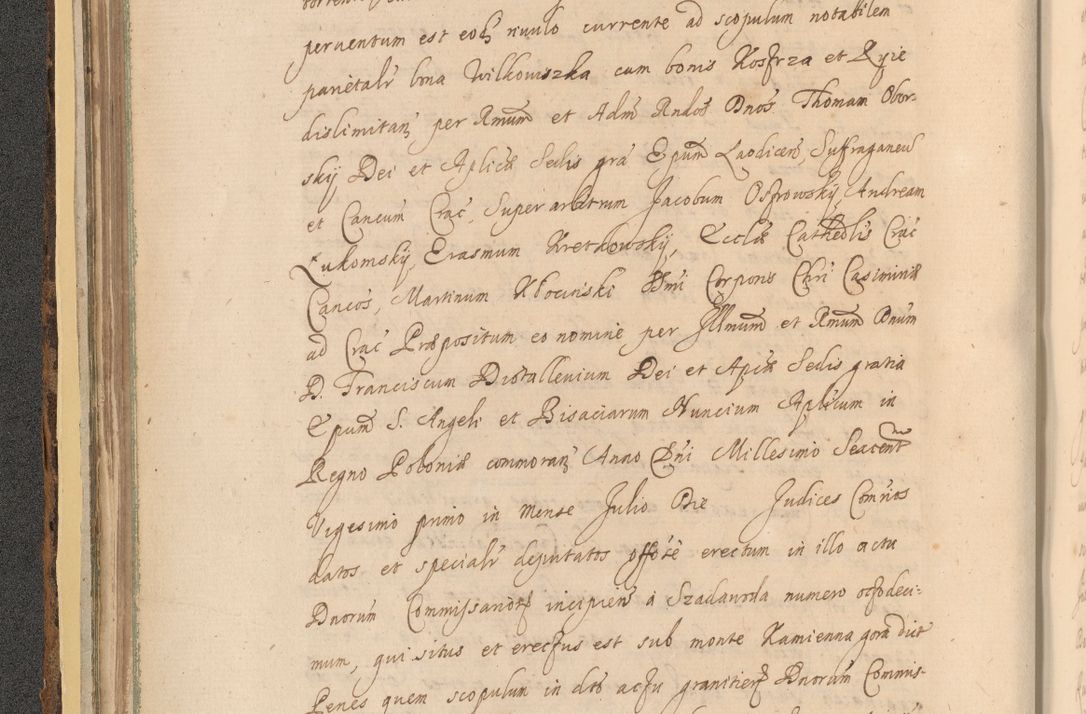 peruentum est eodẽ riuulo currente ad scopulum notabilem
parietalr̃ bona Wilkowiszka cum bonis Kosfrza et Ryie
dislimitanꝫ per Rmum̃ et Adm̃ Rndos̃ Dnos̃ Thomam Obor-
skij Dei et Aplicæ Sedis gr̃a Epum̃ Laodicen̄, Suffraganeũ
et Cancum̃ Crac̃, Superarbitrum Jacobum Osfrowskij, Andream
Lukomskij, Erasmum Kretkowskij, Ecclæ Cathedlis̃ Crac̃
Cancos̃, Martinum Kłocinski Dmi Corporis Chr̃i Casimiriæ
ad Crac̃ Præpositum eo nomine per Illmum̃ et Rmum̃ Dnum̃
D. Franciscum Diotallenium Dei et Aplicæ Sedis gratia
Epum̃ S. Angeli et Bisaciarum Nuncium Aplicum̃ in
Regno Poloniæ commoranꝫ Anno Dñi Millesimo Sexcentmo
Vigesimo primo in Mense Julio Die Judices Comr̃ios
datos et specialr̃ deputatos erectum in illo actu
Dnorum̃ Commissariorꝫ incipien̄ à Szadawoda numero octodeci:
mum, qui situs et erecfus est sub monte Kamienna gora dict̃
Penes quem scopulum in dcõ acfu granitierꝫ Dnorum̃ Commis-